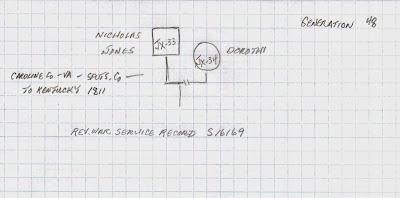 GENERATION 48
NICHOLAS
JONES
Jx-33
DOROTHY
Jx-34
CAROLINE Co. - VA - SPOTS. Co
TO KENTUCKY 1811
REV. WAR. SERVICE RECORD S16169